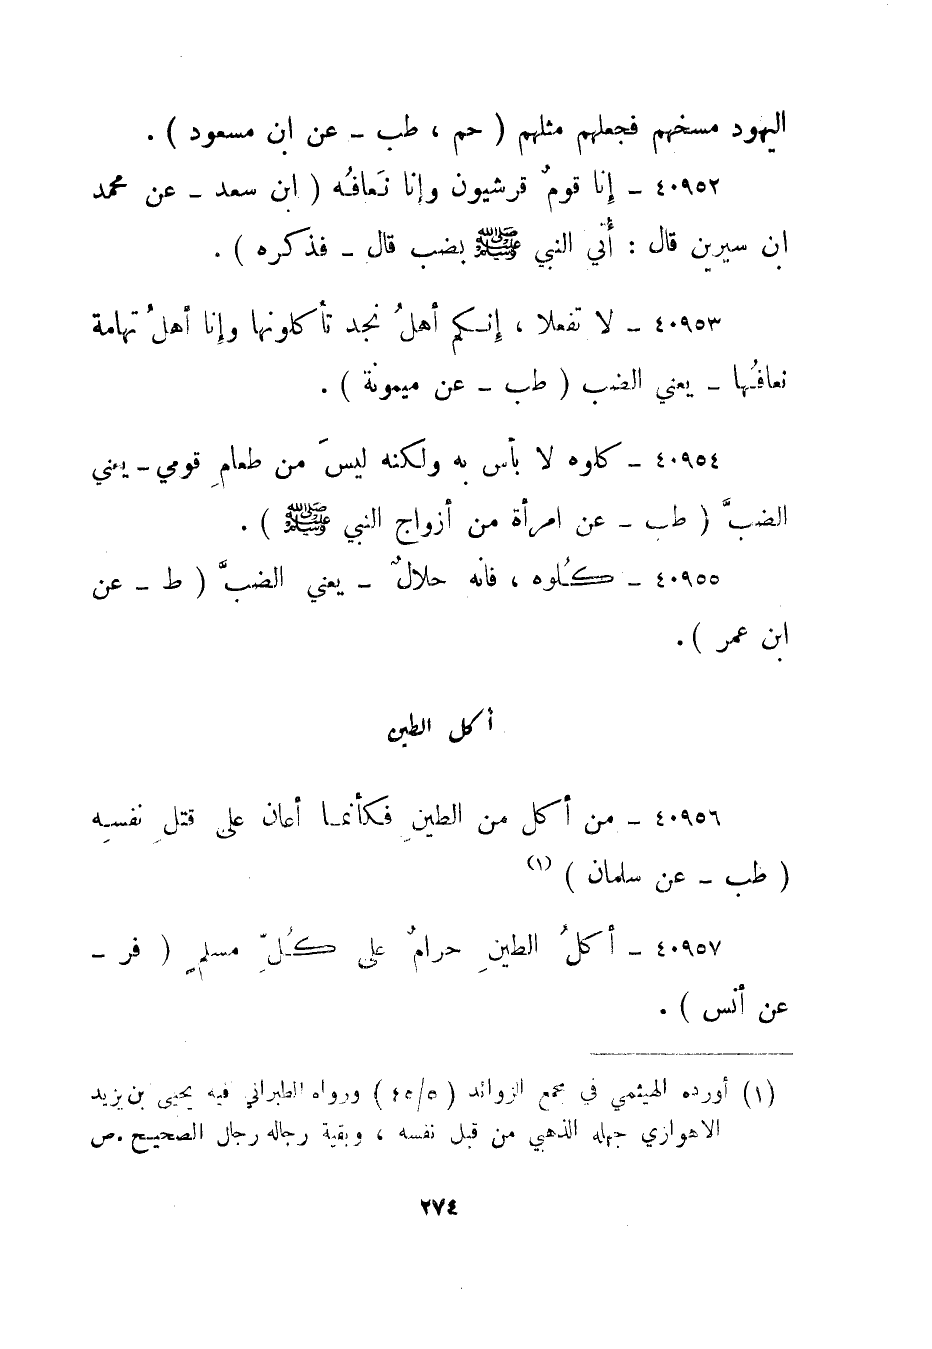 اليهود مسخهم فجعلهم مثلهم ( حم ، طب ـ عن ابن مسعود ) .
٤٠٩٥٢ ـ إنا قومٌ قرشيون وإنا نَعافُه ( ابن سعد ـ عن محمد
ابن سيرين قال : أُتي النبي ﷺ بضب قال ـ فذكره ) .
٤٠٩٥٣ ـ لا تفعلا ، إنكم أهلُ نجد تأكلونها وإنا أهلُ تهامة
نعافُها ـ يعني الضب ( طب ـ عن ميمونة ) .
٤٠٩٥٤ ـ كلوه لا بأس به ولكنه ليسَ من طعامِ قومي ـ يعني
الضبَّ ( طب ـ عن امرأة من أزواج النبي ﷺ ) .
٤٠٩٥٥ ـ كُلوه ، فانه حلالٌ ـ يعني الضبَّ ( ط ـ عن
ابن عمر ) .
أكل الطين
٤٠٩٥٦ ـ من أكل من الطينِ فكأنما أعان على قتلِ نفسِه
( طب ـ عن سلمان ) (١)
٤٠٩٥٧ ـ أكلُ الطينِ حرامٌ على كُلِّ مسلمٍ ( فر ـ
عن أنس ) .
(١) أورده الهيثمي في مجمع الزوائد ( ٤٥/٥ ) ورواه الطبراني فيه يحيى بن يزيد
الاهوازي جهله الذهبي من قبل نفسه ، وبقية رجاله رجال الصحيح . ص
٢٧٤